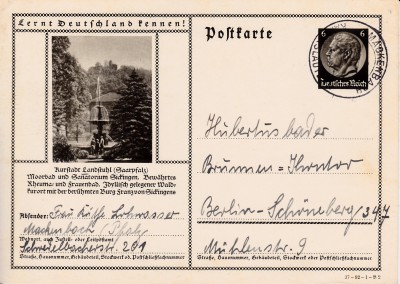 Lernt Deutschland kennen!
Postkarte
6 6
Deutsches Reich
MACKENBACH
Kurstadt Landstuhl (Saarpfalz)
Moorbad und Sanatorium Sickingen. Bewährtes
Rheuma- und Frauenbad. Idyllisch gelegener Wald-
kurort mit der berühmten Burg Franz von Sickingens
Absender: Frau
Mackenbach / Pfalz
Wohnort, auch Zustell- oder Leitpostamt
Schwedelbacherstr. 201
Straße, Hausnummer, Gebäudeteil, Stockwerk od. Postschließfachnummer
Hubertusbader
Brunnen = Kontor
Berlin - Schöneberg 34/7
Mühlenstr. 9
Straße, Hausnummer, Gebäudeteil, Stockwerk oder Postschließfachnummer